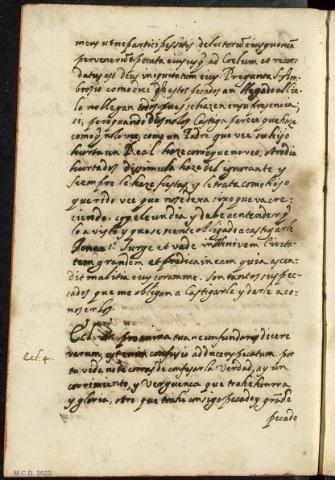 meus ut ne participes sitis delictorum eius quoniam
pervenerunt peccata eius usq ad Coelum et recor
datus est Deus iniquitatum eius. Pregunta S. Am
brosio como dice q estos pecados an llegado al cie
lo no llegan todos pues se hazen en su presencia;
si, pero quando Dios no los Castiga parece que hace
como q no los vee, como un Padre que vee su hijo
hurta un Real hace como que no vee, otro dia
hurta dos disimula haze del ignorante y
siempre le haze fiestas, y le trata como hijo
querido vee que no se demienda sino que va cre
ciendo. cogele un dia y dale a entender q
lo a visto y que se siente obligado a castigarle
Jonae 1. Surge et vade in Ninivem Civita
tem grandem et predica in ea quia ascen
dit malitia eius coram me. Son tantos sus pe
cados que me obligan a Castigarle y darle a co
noscerlos.
pro anima tua ne confundaris dicere
Ecl. 4.
verum, est enim confusio adducens peccatum. por
tu vida no te corras de confesar la verdad, ay un
corrimiento, y verguenca que trahe honrra
y gloria, otro que trahe consigo pecado y grande
pecado
M.C.D. 2022